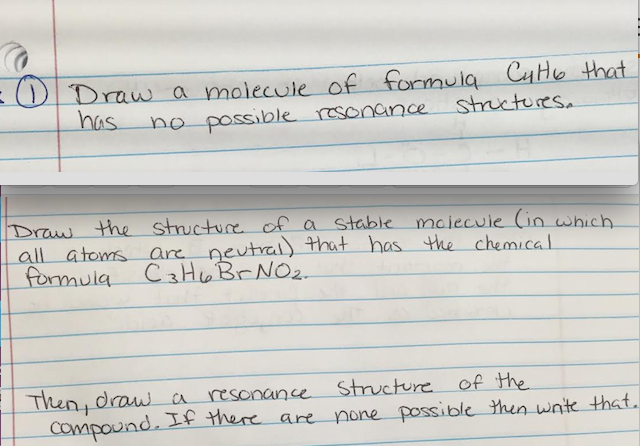 ① Draw a molecule of formula C4H6 that
has no possible resonance structures.
Draw the structure of a stable molecule (in which
all atoms are neutral) that has the chemical
formula C3H6BrNO2.
Then, draw a resonance structure of the
compound. If there are none possible then write that.